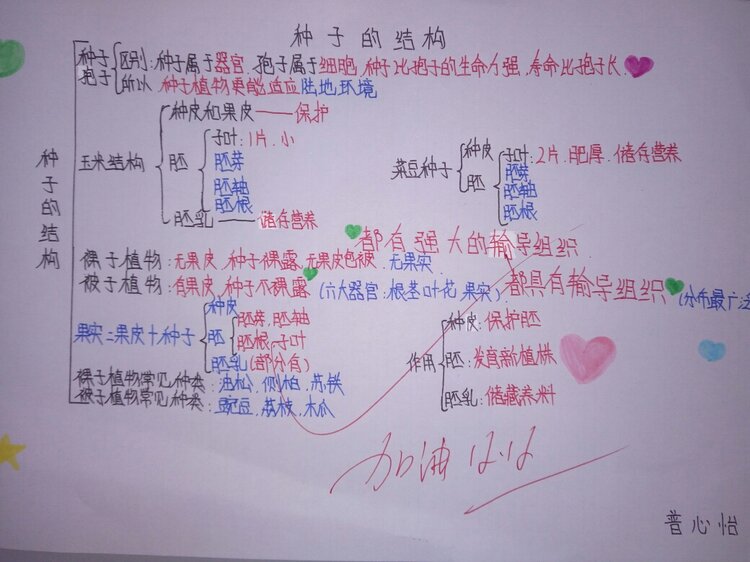 种子的结构
种子 区别:种子属于器官.孢子属于细胞,种子比孢子的生命力强,寿命比孢子长.
孢子 所以 种子植物更能适应陆地环境
种皮和果皮——保护
种子的结构
玉米结构 胚 子叶:1片.小
胚芽
胚轴
胚根
胚乳——储存营养
菜豆种子 种皮
胚 子叶:2片.肥厚.储存营养
胚芽
胚轴
胚根
都有强大的输导组织.
裸子植物:无果皮,种子裸露,无果皮包被.无果实
被子植物:有果皮,种子不裸露(六大器官:根茎叶花 果实)都具有输导组织(分布最广泛
果实=果皮+种子 种皮
胚 胚芽,胚轴
胚根 子叶
胚乳(部分有)
作用 种皮:保护胚
胚:发育新植株
胚乳:储藏养料
裸子植物常见种类:油松,侧柏,苏铁
被子植物常见种类:豌豆,荔枝,木瓜
加油 12.12
普心怡